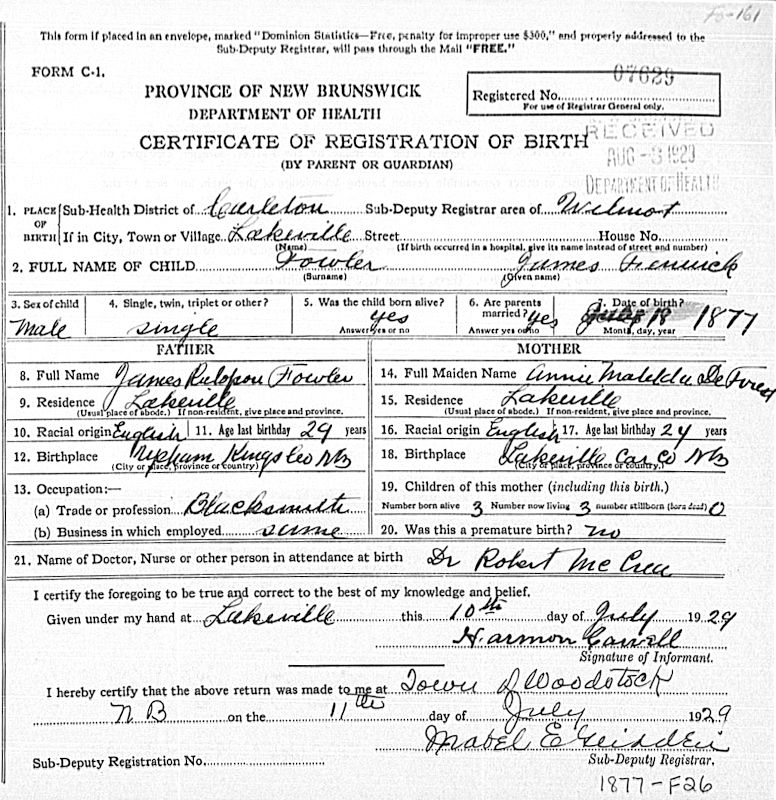 Fo-161
This form if placed in an envelope, marked "Dominion Statistics—Free, penalty for improper use $300," and properly addressed to the
Sub-Deputy Registrar, will pass through the Mail "FREE."
FORM C-1.
07629
PROVINCE OF NEW BRUNSWICK
Registered No.
DEPARTMENT OF HEALTH
For use of Registrar General only.
CERTIFICATE OF REGISTRATION OF BIRTH
RECEIVED
(BY PARENT OR GUARDIAN)
AUG -3 1929
DEPARTMENT OF HEALTH
1. PLACE OF BIRTH Sub-Health District of Carleton Sub-Deputy Registrar area of Wilmot
If in City, Town or Village Lakeville Street House No.
(Name) (If birth occurred in a hospital, give its name instead of street and number)
2. FULL NAME OF CHILD Fowler James Fenwick
(Surname) (Given name)
3. Sex of child 4. Single, twin, triplet or other? 5. Was the child born alive? 6. Are parents married? 7. Date of birth?
Male single yes yes July 18 1877
Answer yes or no Answer yes or no Month, day, year
FATHER MOTHER
8. Full Name James Fowler 14. Full Maiden Name Annie Matilda De
9. Residence Lakeville 15. Residence Lakeville
(Usual place of abode.) If non-resident, give place and province. (Usual place of abode.) If non-resident, give place and province.
10. Racial origin English 11. Age last birthday 29 years 16. Racial origin English 17. Age last birthday 24 years
12. Birthplace Kings Co NB 18. Birthplace Lakeville Car Co NB
(City or place, province or country) (City or place, province or country.)
13. Occupation:— 19. Children of this mother (including this birth.)
(a) Trade or profession Blacksmith Number born alive 3 Number now living 3 number stillborn (born dead) 0
(b) Business in which employed same 20. Was this a premature birth? no
21. Name of Doctor, Nurse or other person in attendance at birth Dr Robert McCrea
I certify the foregoing to be true and correct to the best of my knowledge and belief.
Given under my hand at Lakeville this 10th day of July 1929
Harmon
Signature of Informant.
I hereby certify that the above return was made to me at Town of Woodstock
N B on the 11th day of July 1929
Mabel E
Sub-Deputy Registration No. Sub-Deputy Registrar.
1877-F26